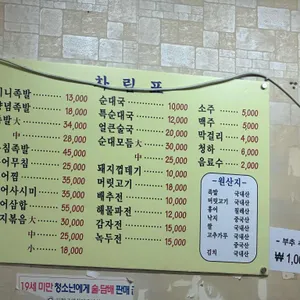 차림표
니족발 13,000
념족발 18,000
발大 34,000
中 28,000
침족발 45,000
어무침 45,000
어찜 35,000
어사시미 35,000
어삼합 45,000
지볶음大 30,000
中 25,000
小 18,000
순대국 10,000
특순대국 12,000
얼큰술국 20,000
순대모듬大 30,000
中 25,000
돼지껍데기 10,000
머릿고기 18,000
배추전 10,000
해물파전 12,000
감자전 15,000
녹두전 15,000
소주 5,000
맥주 5,000
막걸리 4,000
청하 6,000
음료수 2,000
-원산지-
족발 국내산
머릿고기 국내산
홍어 칠레산
낙지 중국산
쌀 국내산
고추가루 국내산
중국산
김치 국내산
- 부추
₩ 1,00
19세 미만 청소년에게 술·담배 판매 금